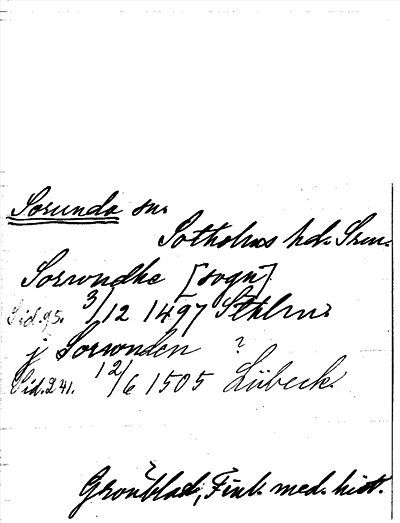 Sorunda sn.
Sotholms hd. Srm.
Sorwndhe [sogn]
Sid. 95. 3/12 1497 Sthlm.
j Sorwnden ?
Sid. 241. 12/6 1505 Lübeck.
Grönblad, Finl. med. hist.